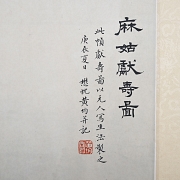 麻姑獻壽圖
此幀獻壽圖以元人寫生法製之
庚辰夏日 懋忱黃均并記